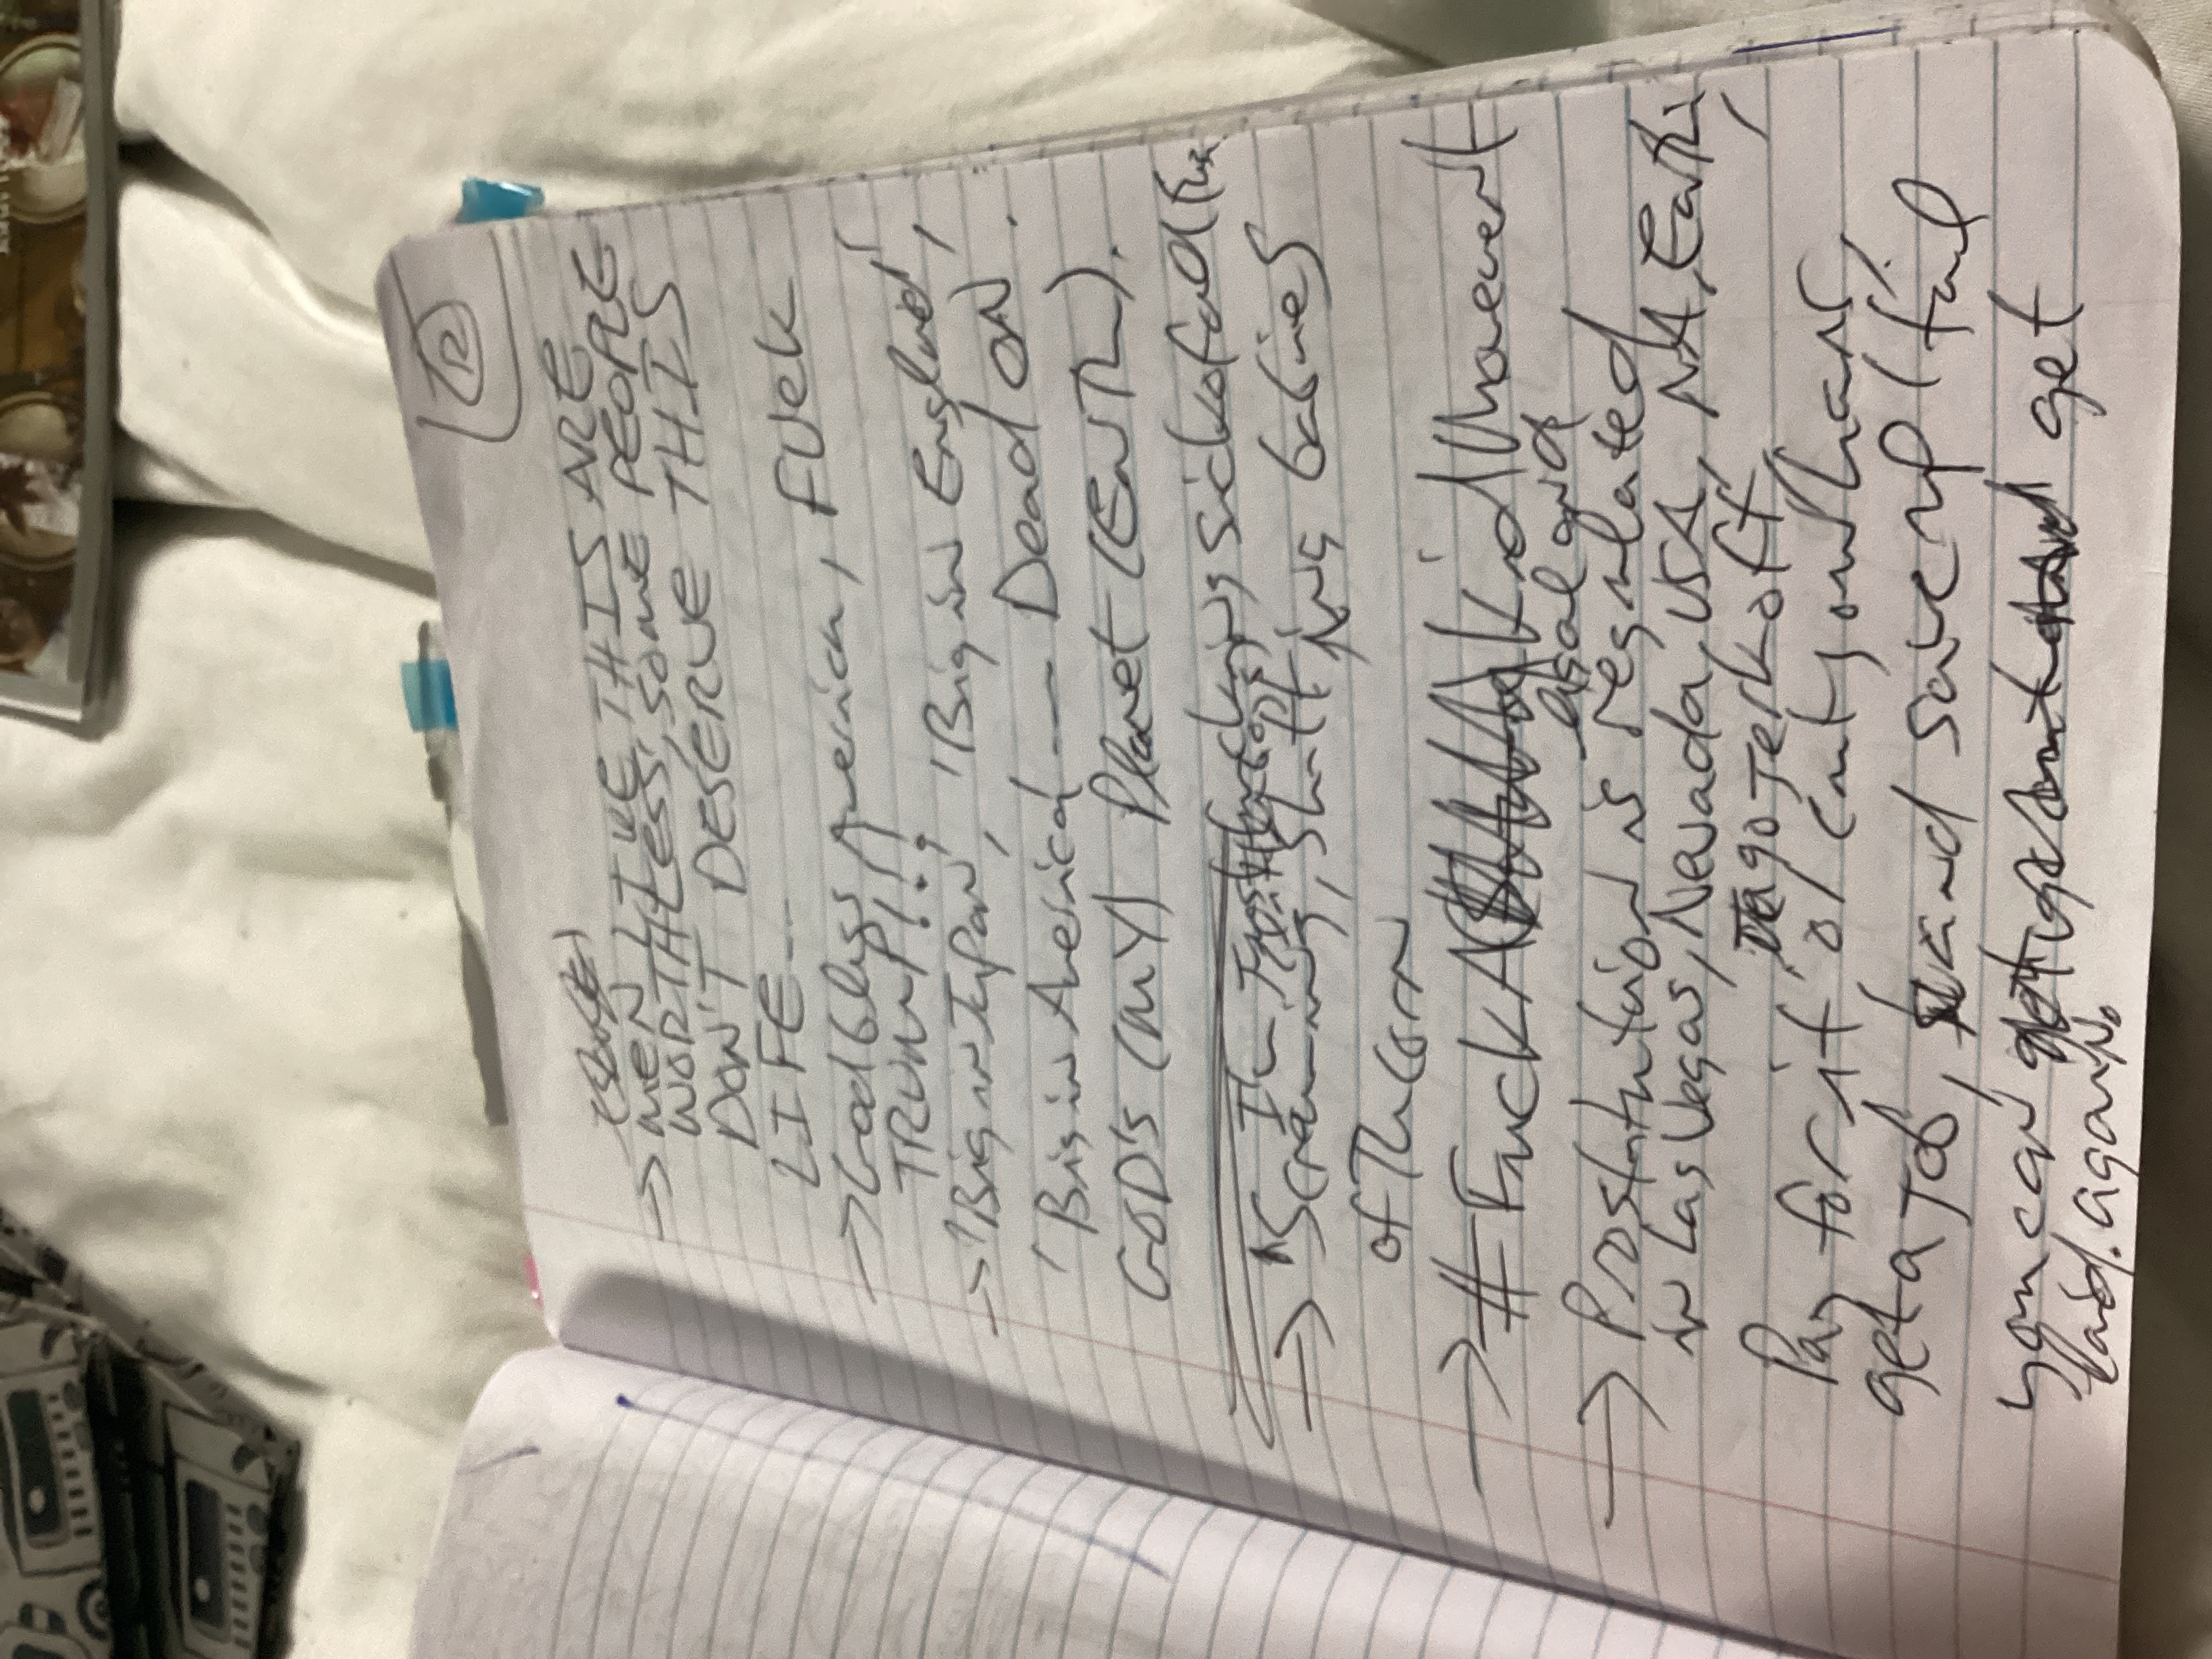 12
→ MEN LIKE THIS ARE
WORTHLESS, SOME PEOPLE
DON'T DESERVE THIS
LIFE--
→ God bless America, FUCK
TRUMP!!!
→ 'Big in Japan', 'Big in England',
'Big in America' -- Dead ON.
GOD'S (MY) Planet (EarTh).
I'm just fucking sick of
→ "Screaming, shitting babies
of The corn
→ # Fuck A Kid Movement
legal and
→ Prostitution is regulated
in Las Vegas, Nevada, USA, NA, Earth,
go jerk off,
Pay for it or cut your hair,
get a job, and save up
you can get
laid. again.